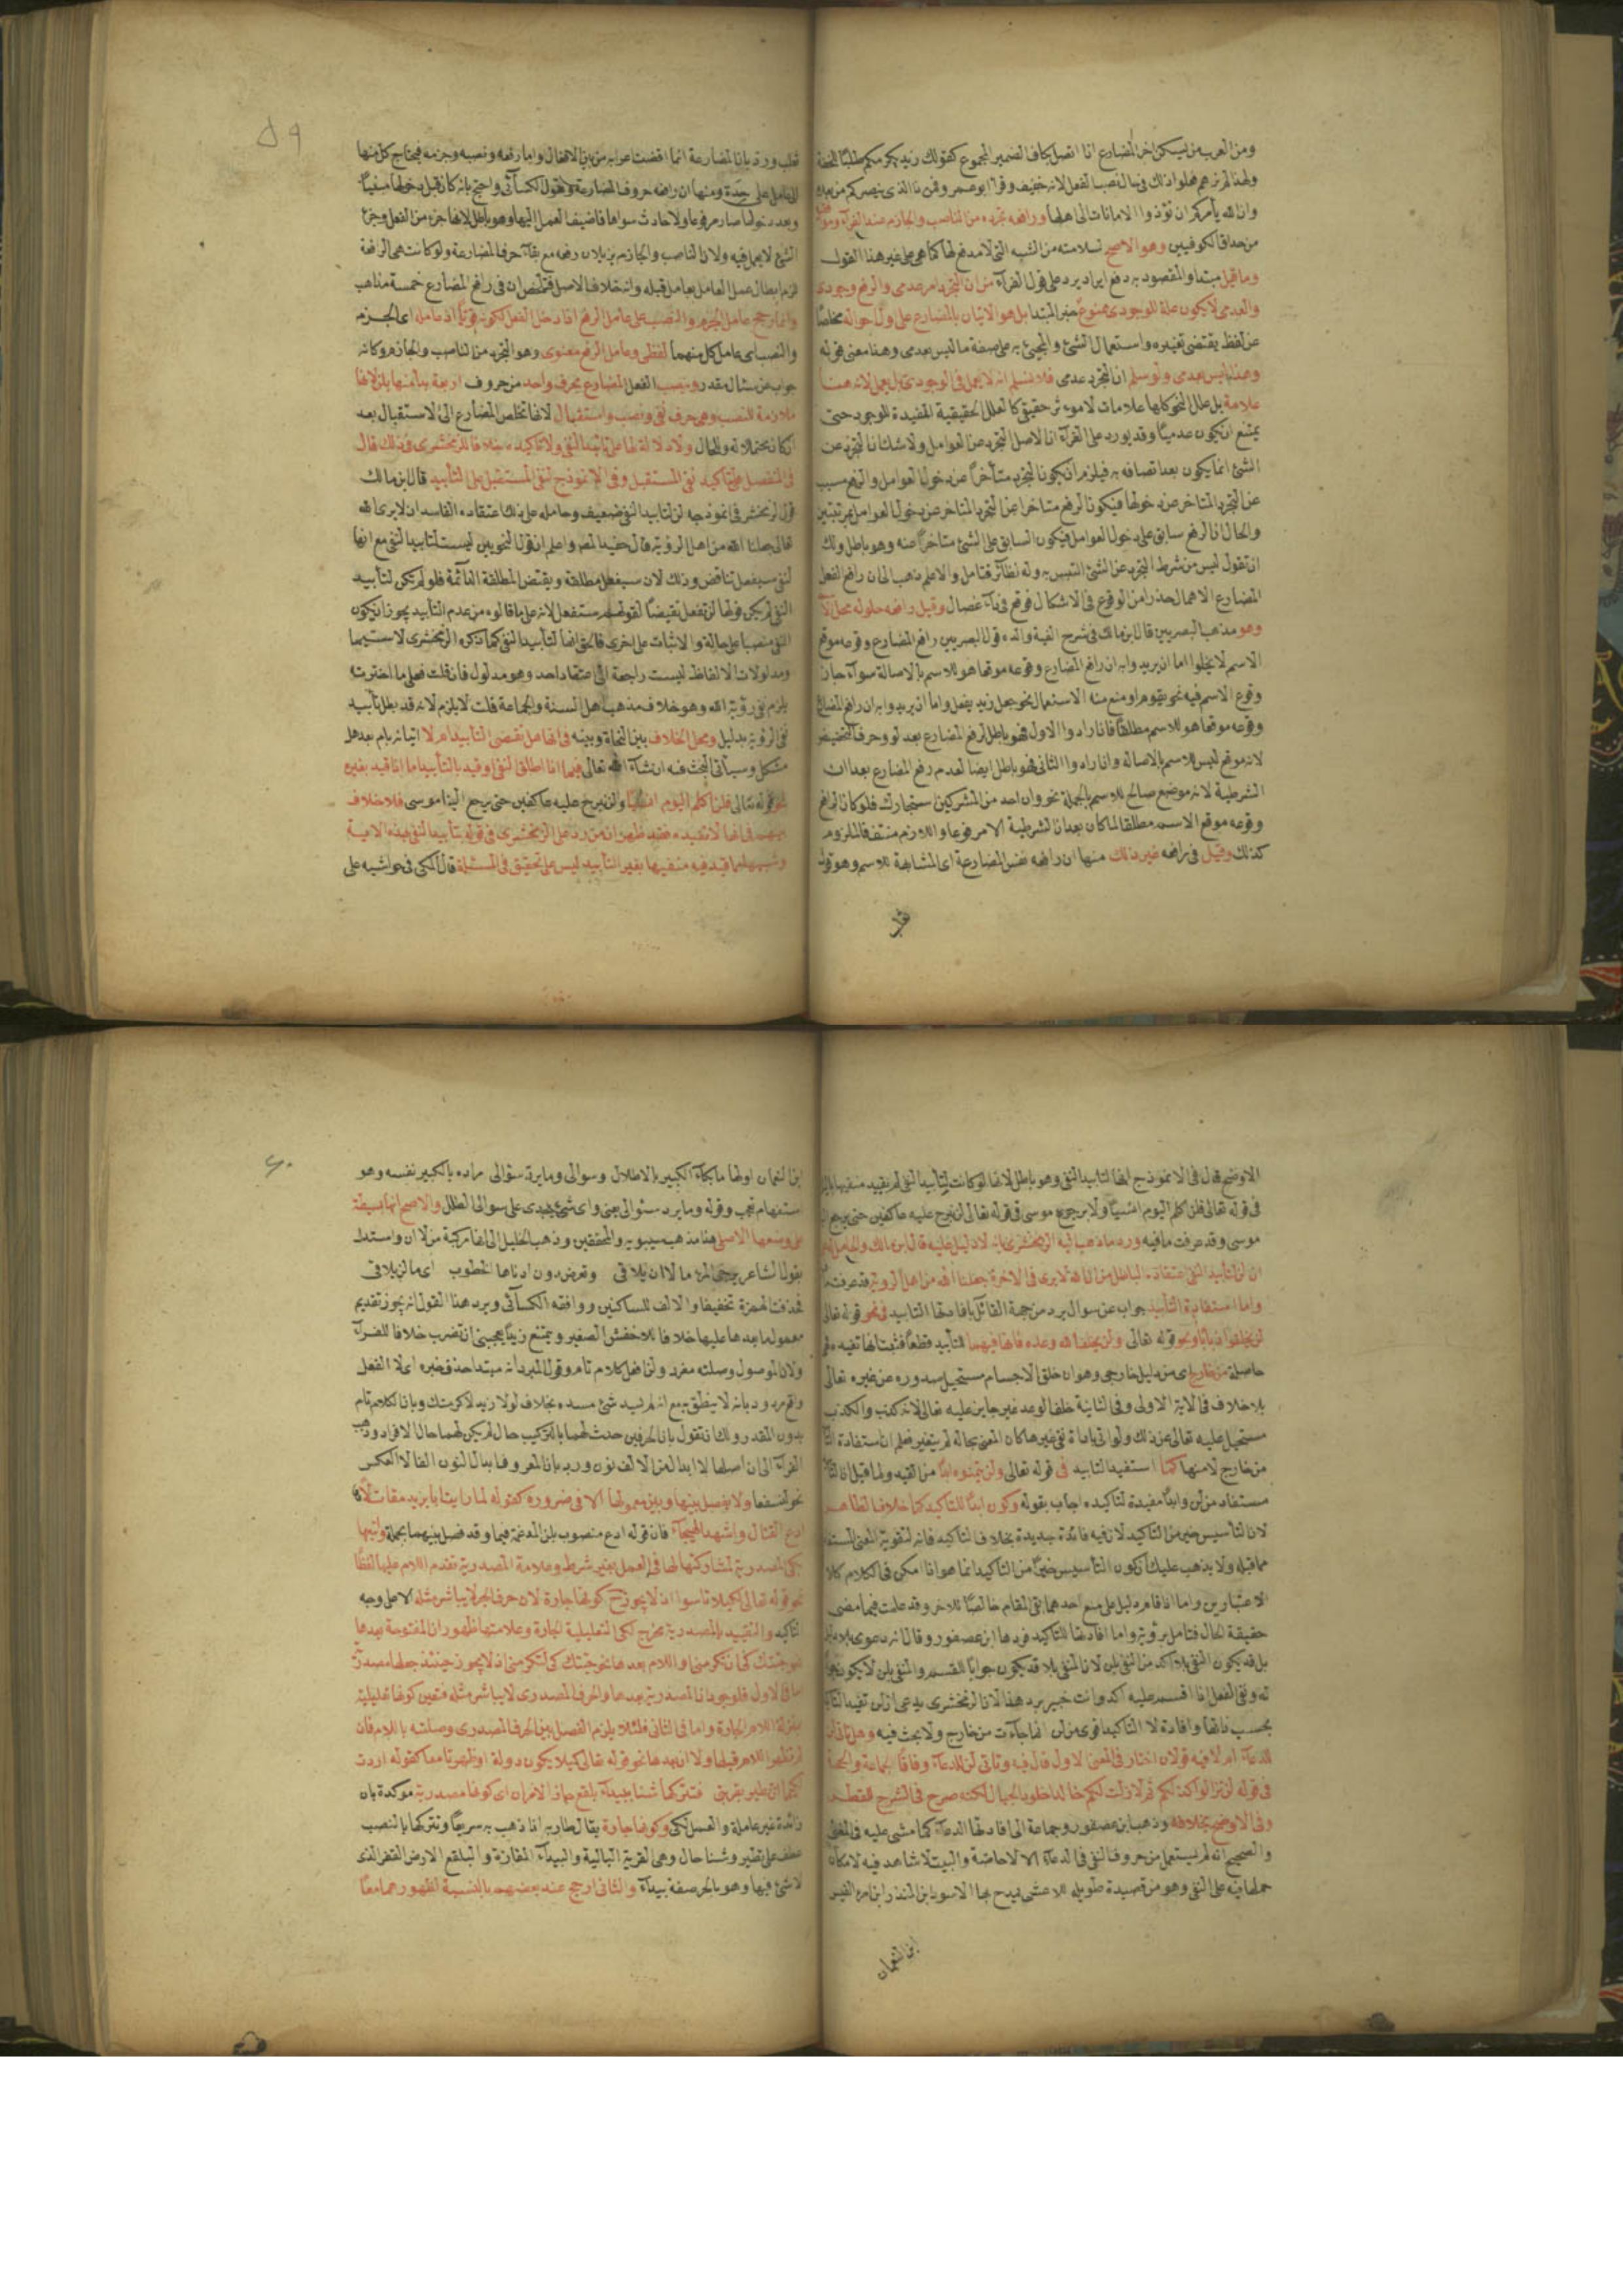 ومن العرب من يسكن اخر المضارع اذا اتصل بكاف الضمير المجموع كقولك زيد يكرمكم طلبا للخفة
وان الله يأمركم ان تؤدوا الامانات الى اهلها ورافعه تجرده من الناصب والجازم عند الفراء
من حذاق الكوفيين وهو الاصح لسلامته من الشبه التي لا مدفع لها كما هي على غير هذا القول
وما قيل مبتدا والمقصود به دفع ايراد يرد على قول الفراء من ان التجرد امر عدمي والرفع وجودي
والعدمي لا يكون علة للوجودي ممنوع خبر المبتدا بل هو الاتيان بالمضارع على اول احواله مخلصا
عن لفظ يقتضي تغييره واستعمال الشئ والمجئ به على صفة ما ليس بعدمي وهذا معنى قوله
وهذا ليس بعدمي ولو سلم ان التجرد عدمي فلا نسلم انه لا يعمل في الوجودي بل يعمل لانه هنا
علامة بل علل النحو كلها علامات لا مؤثر حقيقي كالعلل الحقيقية المفيدة للوجود حتى
يمتنع ان يكون عدميا وقد يورد على الفراء ان الاصل التجرد عن العوامل ولا شك ان التجرد عن
الشئ انما يكون بعد اتصافه به فيلزم ان يكون التجرد متأخرا عن دخول العوامل والرفع مسبب
عن التجرد المتاخر عن دخولها فيكون الرفع متاخرا عن التجرد المتاخر عن دخول العوامل بمرتبتين
والحال ان الرفع سابق على دخول العوامل فيكون السابق على الشئ متاخرا عنه وهو باطل ولك
ان تقول ليس من شرط التجرد عن الشئ التلبس به وله نظائر فتامل والاعلم ذهب الى ان رافع الفعل
المضارع الاهمال حذرا من الوقوع في الاشكال فوقع في داء عضال وقيل رافعه حلوله محل الا
وهو مذهب البصريين قال ابن مالك في شرح الفية والده قول البصريين رافع المضارع وقوعه موقع
الاسم لا يخلوا اما ان يريدوا به ان رافع المضارع وقوعه موقعا هو للاسم بالاصالة سواء جاز
وقوع الاسم فيه نحو يقوم او منع منه الاستعمال نحو جعل زيد يفعل واما ان يريدوا به ان رافع المضارع
وقوعه موقعا هو للاسم مطلقا فان ارادوا الاول فهو باطل لرفع المضارع بعد لو وحرف التحضيض
لانه موقع ليس للاسم بالاصالة وان ارادوا الثاني فهو باطل ايضا لعدم رفع المضارع بعد ان
الشرطية لانه موضع صالح للاسم بالجملة نحو وان احد من المشركين استجارك فلو كان الرافع
وقوعه موقع الاسم مطلقا لما كان بعد ان الشرطية الا مرفوعا واللازم منتف فالملزوم
كذلك وقيل في رافعه غير ذلك منها ان رافعه نفس المضارعة اى المشابهة للاسم وهو قول
٥٩
ثعلب ورد بان المضارعة انما اقتضت اعرابه من بين الافعال واما رفعه ونصبه وجزمه فيحتاج كل منها
الى عامل على حدة ومنها ان رافعه حروف المضارعة وهو قول الكسائي واحتج بانه كان قبل دخولها مبنيا
وبعد دخولها صار مرفوعا ولا حادث سواها فاضيف العمل اليها وهو باطل لانها جزء من الفعل وجزء
الشئ لا يعمل فيه ولان الناصب والجازم يزيلان رفعه مع بقاء حرف المضارعة ولو كانت هي الرافعة
لزم ابطال عمل العامل بعامل قبله وانه خلاف الاصل فتلخص ان في رافع المضارع خمسة مذاهب
وانما رجح عامل الجزم والنصب على عامل الرفع اذا دخل الفعل لكونه قويا اذ عامله اى الجزم
والنصب اى عامل كل منهما لفظي وعامل الرفع معنوي وهو التجرد من الناصب والجازم وكانه
جواب عن سئال مقدر وينصب الفعل المضارع بحرف واحد من حروف اربعة بدأ منها بلن لانها
ملازمة للنصب وهي حرف نفي ونصب واستقبال لانها تخلص المضارع الى الاستقبال بعد
ان كان محتملا له وللحال ولا دلالة لها على تأبيد النفي ولا تأكيده خلافا للزمخشري في ذلك قال
في المفصل على تأكيد نفي المستقبل وفي الانموذج لنفي المستقبل على التأبيد قال ابن مالك
قول الزمخشري في انموذجه لن لتابيد النفي ضعيف وحامله على ذلك اعتقاده الفاسد ان لا يرى الله
تعالى جعلنا الله من اهل الرؤية قال حفيد المص واعلم ان قول النحويين ليست لتأبيد النفي مع انها
لنفي سيفعل تناقض وذلك لان سيفعل مطلقة ونقيض المطلقة الدائمة فلو لم يكن لتأبيد
النفي لم يكن قولنا لن تفعل نقيضا لقولهم ستفعل لانه على ما قالوه من عدم التأبيد يجوز ان يكون
النفي منصبا على حالة والاثبات على اخرى فالحق انها لتأبيد النفي كما ذكره الزمخشري لا سيما
ومدلولات الالفاظ ليست راجعة الى اعتقاد احد وهو مدلول فان قلت فعلى ما اخترته
يلزم نفي رؤية الله وهو خلاف مذهب اهل السنة والجماعة قلت لا يلزم لانه قد بطل تأبيد
نفي الرؤية بدليل ومحل الخلاف بين النحاة وبينه في انها هل تقتضي التأبيد ام لا
مشكل وسيأتي البحث فيه ان شاء الله تعالى فيما اذا اطلق النفي او قيد بالتأبيد اما اذا قيد بغيره
نحو قوله تعالى فلن اكلم اليوم انسيا ولن نبرح عليه عاكفين حتى يرجع الينا موسى فلا خلاف
بينهم في انها لا تفيده فقد ظهر ان من رد على الزمخشري في قوله بتأبيد النفي بهذه الاية
وشبهها مما قيد فيه منفيها بغير التأبيد ليس على تحقيق في المسئلة قال المكي في حواشيه على
الاوضح قال في الانموذج انها لتأبيد النفي وهو باطل لانها لو كانت لتأبيد النفي لم يقيد منفيها باليوم
في قوله تعالى فلن اكلم اليوم انسيا ولا برجوع موسى في قوله تعالى لن نبرح عليه عاكفين حتى يرجع
موسى وقد عرفت ما فيه ورد ما ذهب اليه الزمخشري بانه لا دليل عليه قال ابن مالك والحامل له
ان لن لتأبيد النفي اعتقاده الباطل من ان الله لا يرى في الاخرة جعلنا الله من اهل الرؤية قد عرفت
واما استفادة التأبيد جواب عن سوال يرد من جهة القائل بافادتها التابيد في نحو قوله تعالى
لن يخلقوا ذبابا ونحو قوله تعالى ولن يخلف الله وعده فانها فيهما للتأبيد قطعا
حاصلة من خارج اى من دليل خارجي وهو ان خلق الاجسام مستحيل صدوره عن غيره تعالى
بلا خلاف في الاية الاولى وفي الثانية خلف الوعد غير جايز عليه تعالى لانه كذب والكذب
مستحيل عليه تعالى عن ذلك ولو اتى باداة نفي غيرها كان المعنى بحاله لم يتغير فعلم ان استفادة
من خارج لا منها كما استفيد التابيد في قوله تعالى ولن يتمنوه ابدا
مستفاد من لن وابدا مفيدة لتاكيده اجاب بقوله وكون ابدا للتاكيد كما خلاف الظاهر
لان التأسيس خير من التاكيد لان فيه فائدة جديدة بخلاف التاكيد فانه لتقوية المعنى المستفاد
مما قبله ولا يذهب عليك ان كون التأسيس خيرا من التاكيد انما هو اذا امكن في الكلام كلا
الاعتبارين واما اذا قام دليل على منع احدهما بقي المقام خالصا للاخر وقد علمت فيما مضى
حقيقة الحال فتامل برؤية واما افادتها للتاكيد فردها ابن عصفور وقال انه دعوى بلا دليل
بل قد يكون النفي بلا اكد من النفي بلن لان المنفي بلا قد يكون جوابا للقسم والمنفي بلن لا يكون
له ونفي الفعل اذا اقسم عليه اكد وانت خبير برد هذا لان الزمخشري يدعي ان لن تفيد
بحسب ذاتها وافادة لا التاكيد اقوى من لن انما جاءت من خارج ولا بحث فيه وهل تأتي لن
للدعاء ام لا فيه قولان اختار في المغني الاول قال فيه وتأتي لن للدعاء وفاقا لجماعة والحجة
في قوله لن تزالوا كذلكم ثم لا زلت لكم خالدا خلود الجبال لكنه صرح في شرح القطر
وفي الاوضح بخلافه وذهب ابن عصفور وجماعة الى افادتها الدعاء كما مشى عليه في المغني
والصحيح انه لم يستعمل من حروف النفي في الدعاء الا لا خاصة والبيت لا شاهد فيه لامكان
حملها فيه على النفي وهو من قصيدة طويلة للاعشى يمدح بها الاسود ابن المنذر ابن امرء القيس
ابن النعمان
٦٠
ابن النعمان اولها ما بكاء الكبير بالاطلال وسوالي وما يرد سؤالي مراده بالكبير نفسه وهو
استفهام تعجب وقوله وما يرد سئوالي يعني واى شئ يجدى على سوالى الطلل والاصح انها بسيطة
على وضعها الاصلي هذا مذهب سيبويه والمحققين وذهب الخليل الى انها مركبة من لا ان واستدل
بقول الشاعر يرجى المرء ما لا ان يلاقي وتعرض دون ادناها الخطوب اى ما لن يلاقي
فحذفت الهمزة تخفيفا والالف للساكنين ووافقه الكسائي ويرد هذا القول انه يجوز تقديم
معمول ما بعدها عليها خلافا للاخفش الصغير ويمتنع زيدا يعجبني ان تضرب خلافا للفراء
ولان الموصول وصلته مفرد ولن افعل كلام تام وقول المبرد انه مبتدا حذف خبره اى لا الفعل
واقع مردود بانه لا ينطق به مع انه لم يسد شئ مسده بخلاف لولا زيد لاكرمتك وبان الكلام تام
بدون المقدر ولك ان تقول بان الحرفين حدث لهما بالتركيب حال لم يكن لهما حال الافراد وذهب
الفراء الى ان اصلها لا ابدل من الالف نون ورد بان المعروف ابدال النون الفا لا العكس
نحو لنسفعا ولا يفصل بينها وبين معمولها الا في ضرورة كقوله لما رايت ابا يزيد مقاتلا
ادع القتال واشهد الهيجاء فان قوله ادع منصوب بلن المدغمة فيما وقد فصل بينهما بجملة
بكي المصدرية لمشاركتها لها في العمل بغير شرط وعلامة المصدرية تقدم اللام عليها لفظا
نحو قوله تعالى لكيلا تاسوا اذ لا يجوز كونها جارة لان حرف الجر لا يباشر مثله الا على وجه
التاكيد والتقييد بالمصدرية مخرج لكي التعليلية الجارة وعلامتها ظهور ان المفتوحة بعدها
نحو جئتك كي ان تكرمني واللام بعدها نحو جئتك كي لتكرمني اذ لا يجوز حينئذ جعلها مصدرية
اما في الاول فلوجود ان المصدرية بعدها والحرف المصدري لا يباشر مثله فتعين كونها تعليلية
بمنزلة اللام الجارة واما في الثاني فلئلا يلزم الفصل بين الحرف المصدري وصلته باللام فان
لم تظهر اللام قبلها ولا ان بعدها نحو قوله تعالى كيلا يكون دولة او ظهرتا معا كقوله اردت
لكيما ان تطير بقربتي فتتركها شنا ببيداء بلقع جاز الامران اى كونها مصدرية موكدة بان
زائدة غير عاملة والعمل لكي وكونها جارة يقال طار به اذا ذهب به سريعا وتتركها بالنصب
عطف على تطير وشنا حال وهي القربة البالية والبيداء المفازة والبلقع الارض القفر الذى
لا شئ فيها وهو بالجر صفة بيداء والثاني ارجح عند بعضهم بالنسبة لظهورهما معا